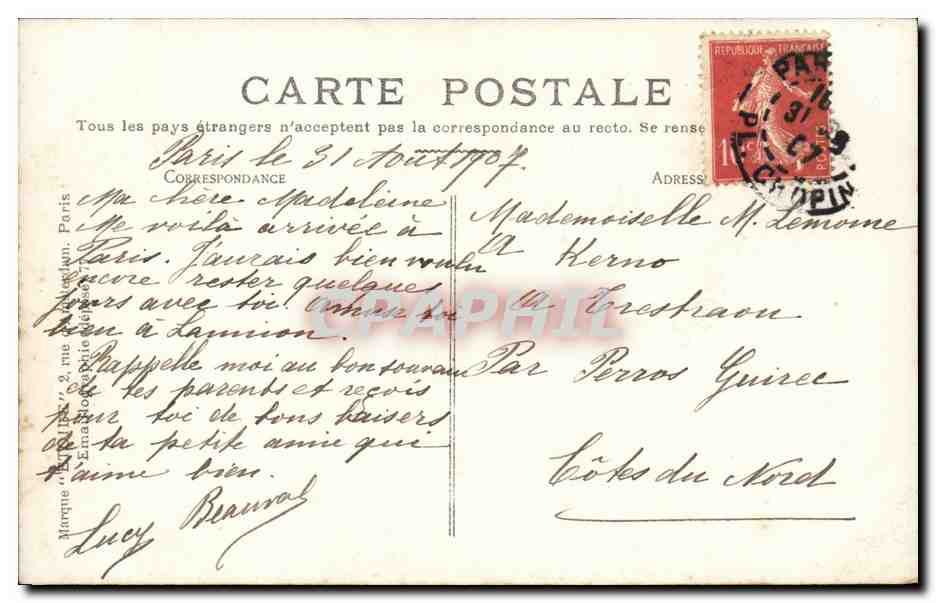 CARTE POSTALE
Tous les pays étrangers n'acceptent pas la correspondance au recto. Se rense
Paris le 31 Août 1907.
CORRESPONDANCE
Ma chère Madeleine
Me voilà arrivée à
Paris. J'aurais bien voulu
encore rester quelques
jours avec toi amuse toi
bien à Lannion.
Rappelle moi au bon souvenir
de tes parents et reçois
pour toi de bons baisers
de ta petite amie qui
t'aime bien.
Lucy Beauval
ADRESS
Mademoiselle M. Lemoine
A Kerno
A Trestraou
Par Perros Guirec
Côtes du Nord
REPUBLIQUE FRANÇAISE
10 c
POSTES
PAR
16
31
07
PL. CHOPIN
Marque "ETOILE" 2, rue Paris
Emaillographie
CPAPHIL